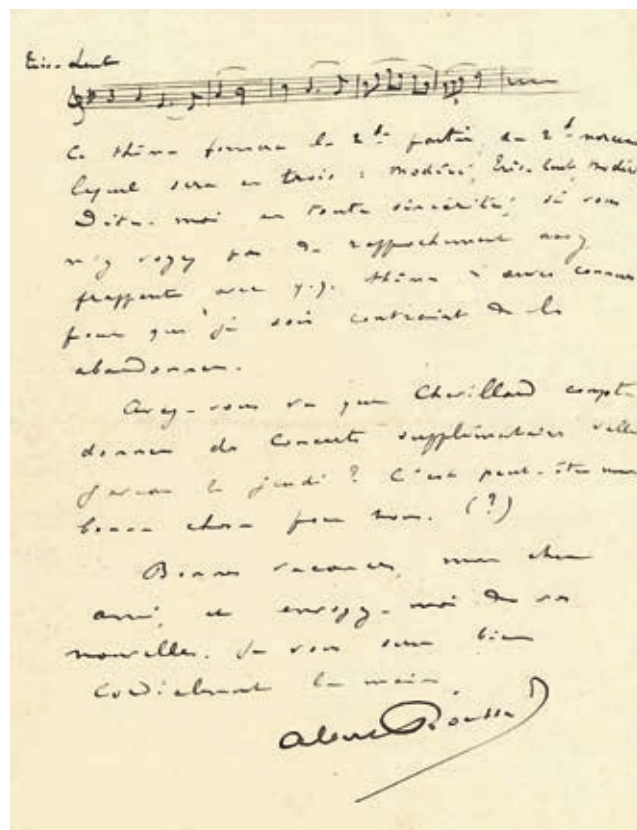 Très lent
Ce thème formera la 2de partie du 2d morceau
lequel sera en trois : Modéré, Très lent, Modéré
Dites-moi en toute sincérité, si vous
n'y voyez pas de rapprochement assez
frappant avec q.q. thème connu
pour que je sois contraint de le
abandonner.
Avez-vous vu que Chevillard compte
donner des Concerts supplémentaires salle
Gaveau le jeudi ? C'est peut-être une
bonne chose pour nous. (?)
Bonnes vacances, mon cher
ami, et envoyez-moi de vos
nouvelles. Je vous serre bien
cordialement la main
Albert Roussel